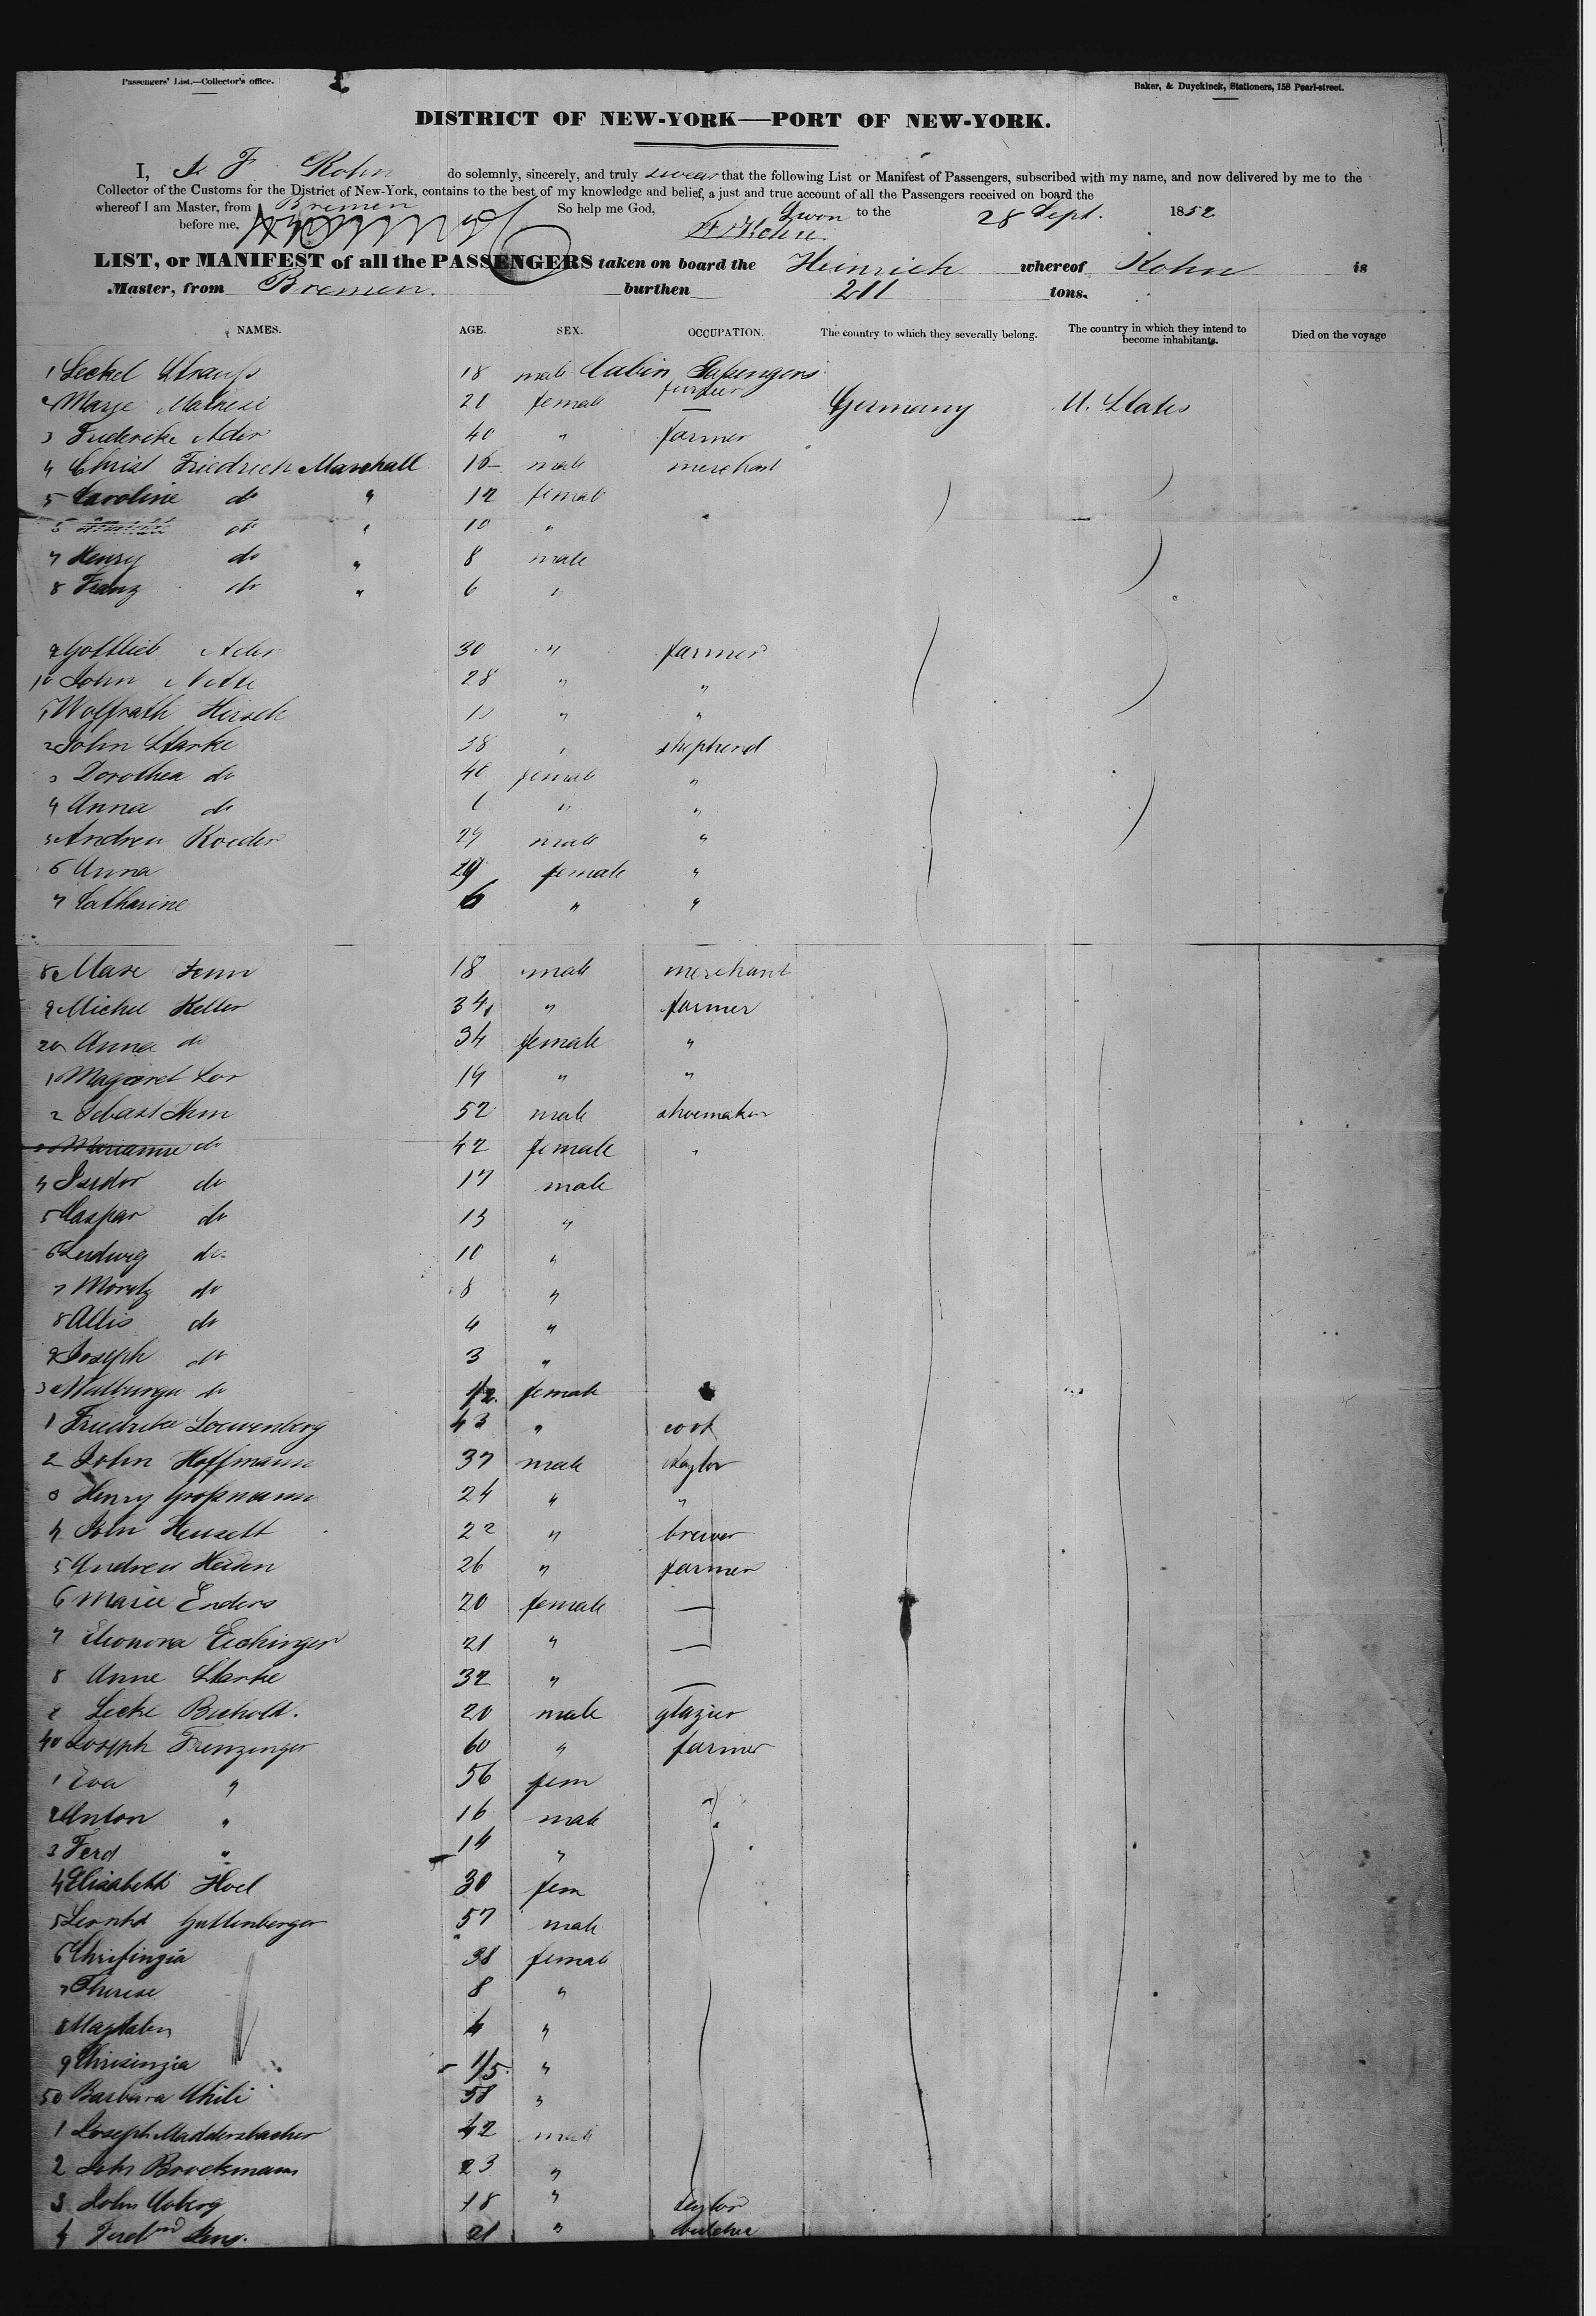 Passengers' List.—Collector's office.
Baker, & Duyckinck, Stationers, 158 Pearl-street.
DISTRICT OF NEW-YORK—PORT OF NEW-YORK.
I, F Kohn do solemnly, sincerely, and truly swear that the following List or Manifest of Passengers, subscribed with my name, and now delivered by me to the
Collector of the Customs for the District of New-York, contains to the best of my knowledge and belief, a just and true account of all the Passengers received on board the
whereof I am Master, from Bremen So help me God, Swon to the 28 Sept. 1852
before me,
LIST, or MANIFEST of all the PASSENGERS taken on board the Heinrich whereof Kohn is
Master, from Bremen. burthen 211 tons.
NAMES. AGE. SEX. OCCUPATION. The country to which they severally belong. The country in which they intend to become inhabitants. Died on the voyage
1 Seckel Strauss 18 male Cabin Passengers
2 Marge 21 female — Germany U. States
3 Frederike Ader 40 " farmer
4 Christ Friedrich Marschall 16 male merchant
5 Caroline do " 12 female
5 do " 10 "
7 Henry do " 8 male
8 Franz do " 6 "
9 Gottlieb Ader 30 " farmer
10 John 28 " "
1 Wolfrath Hirsch " "
2 John Starke 38 " shepherd
3 Dorothea do 40 female "
4 Anna do " "
5 Andreu Roeder 29 male "
6 Anna 29 female "
7 Catharine 6 " "
8 18 male merchant
9 Michel Keller 34 " farmer
20 Anna do 34 female "
1 Magaret 19 " "
2 Sebast 52 male shoemaker
3 Marianne do 42 female "
4 Isidor do 17 male
5 Caspar do 13 "
6 Ludwig do 10 "
7 Moritz do 8 "
8 do 4 "
9 Joseph do 3 "
30 Walburga do 1/2 female
1 Friedrike Loewenberg 43 " cook
2 John Hoffmann 37 male taylor
3 Henry Großmann 24 " "
4 John Henselt 22 " brewer
5 Andreu Heiden 26 " farmer
6 Marie Enders 20 female —
7 Eleonora Eichinger 21 " —
8 Anne Starke 32 " —
9 20 male glazier
40 Joseph Frenzinger 60 " farmer
1 Eva " 56 fem
2 Anton " 16 male
3 Ferd " 14 "
4 Elisabeth Hoel 30 fem
5 Guttenberger 57 male
6 38 female
7 Therese 8 "
8 Magdalen 4 "
9 1/5 "
50 Barbara 58 "
1 Joseph Maddersbacher 42 male
2 Joh Brockmann 23 "
3 John 18 " taylor
4 Ferdnd 21 " butcher